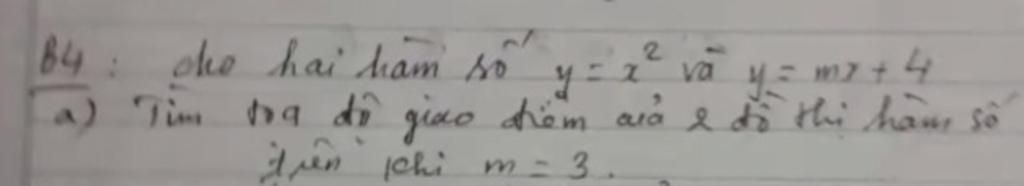 B4: cho hai hàm số y = x² và y = mx + 4
a) Tìm toạ độ giao điểm của 2 đồ thị hàm số
trên khi m = 3.